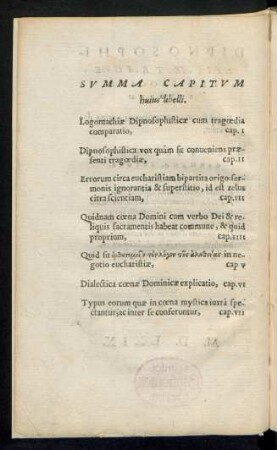 SVMMA CAPITVM
huius libelli.
Logomachiæ Dipnosophisticæ cum tragœdia
comparatio, cap. I
Dipnosophistica vox quàm sit conueniens præ-
senti tragœdiæ, cap. II
Errorum circa eucharistiam bipartita origo: ser-
monis ignorantia & superstitio, id est zelus
citra scientiam, cap. III
Quidnam cœna Domini cum verbo Dei & re-
liquis sacramentis habeat commune, & quid
proprium, cap. IIII
Quid sit ὀρθοτομεῖν τὸν λόγον τῆς ἀληθείας in ne-
gotio eucharistiæ, cap V
Dialectica cœnæ Dominicæ explicatio, cap. VI
Typus eorum quæ in cœna mystica iuxtà spe-
ctantur, ac inter se conferuntur, cap. VII